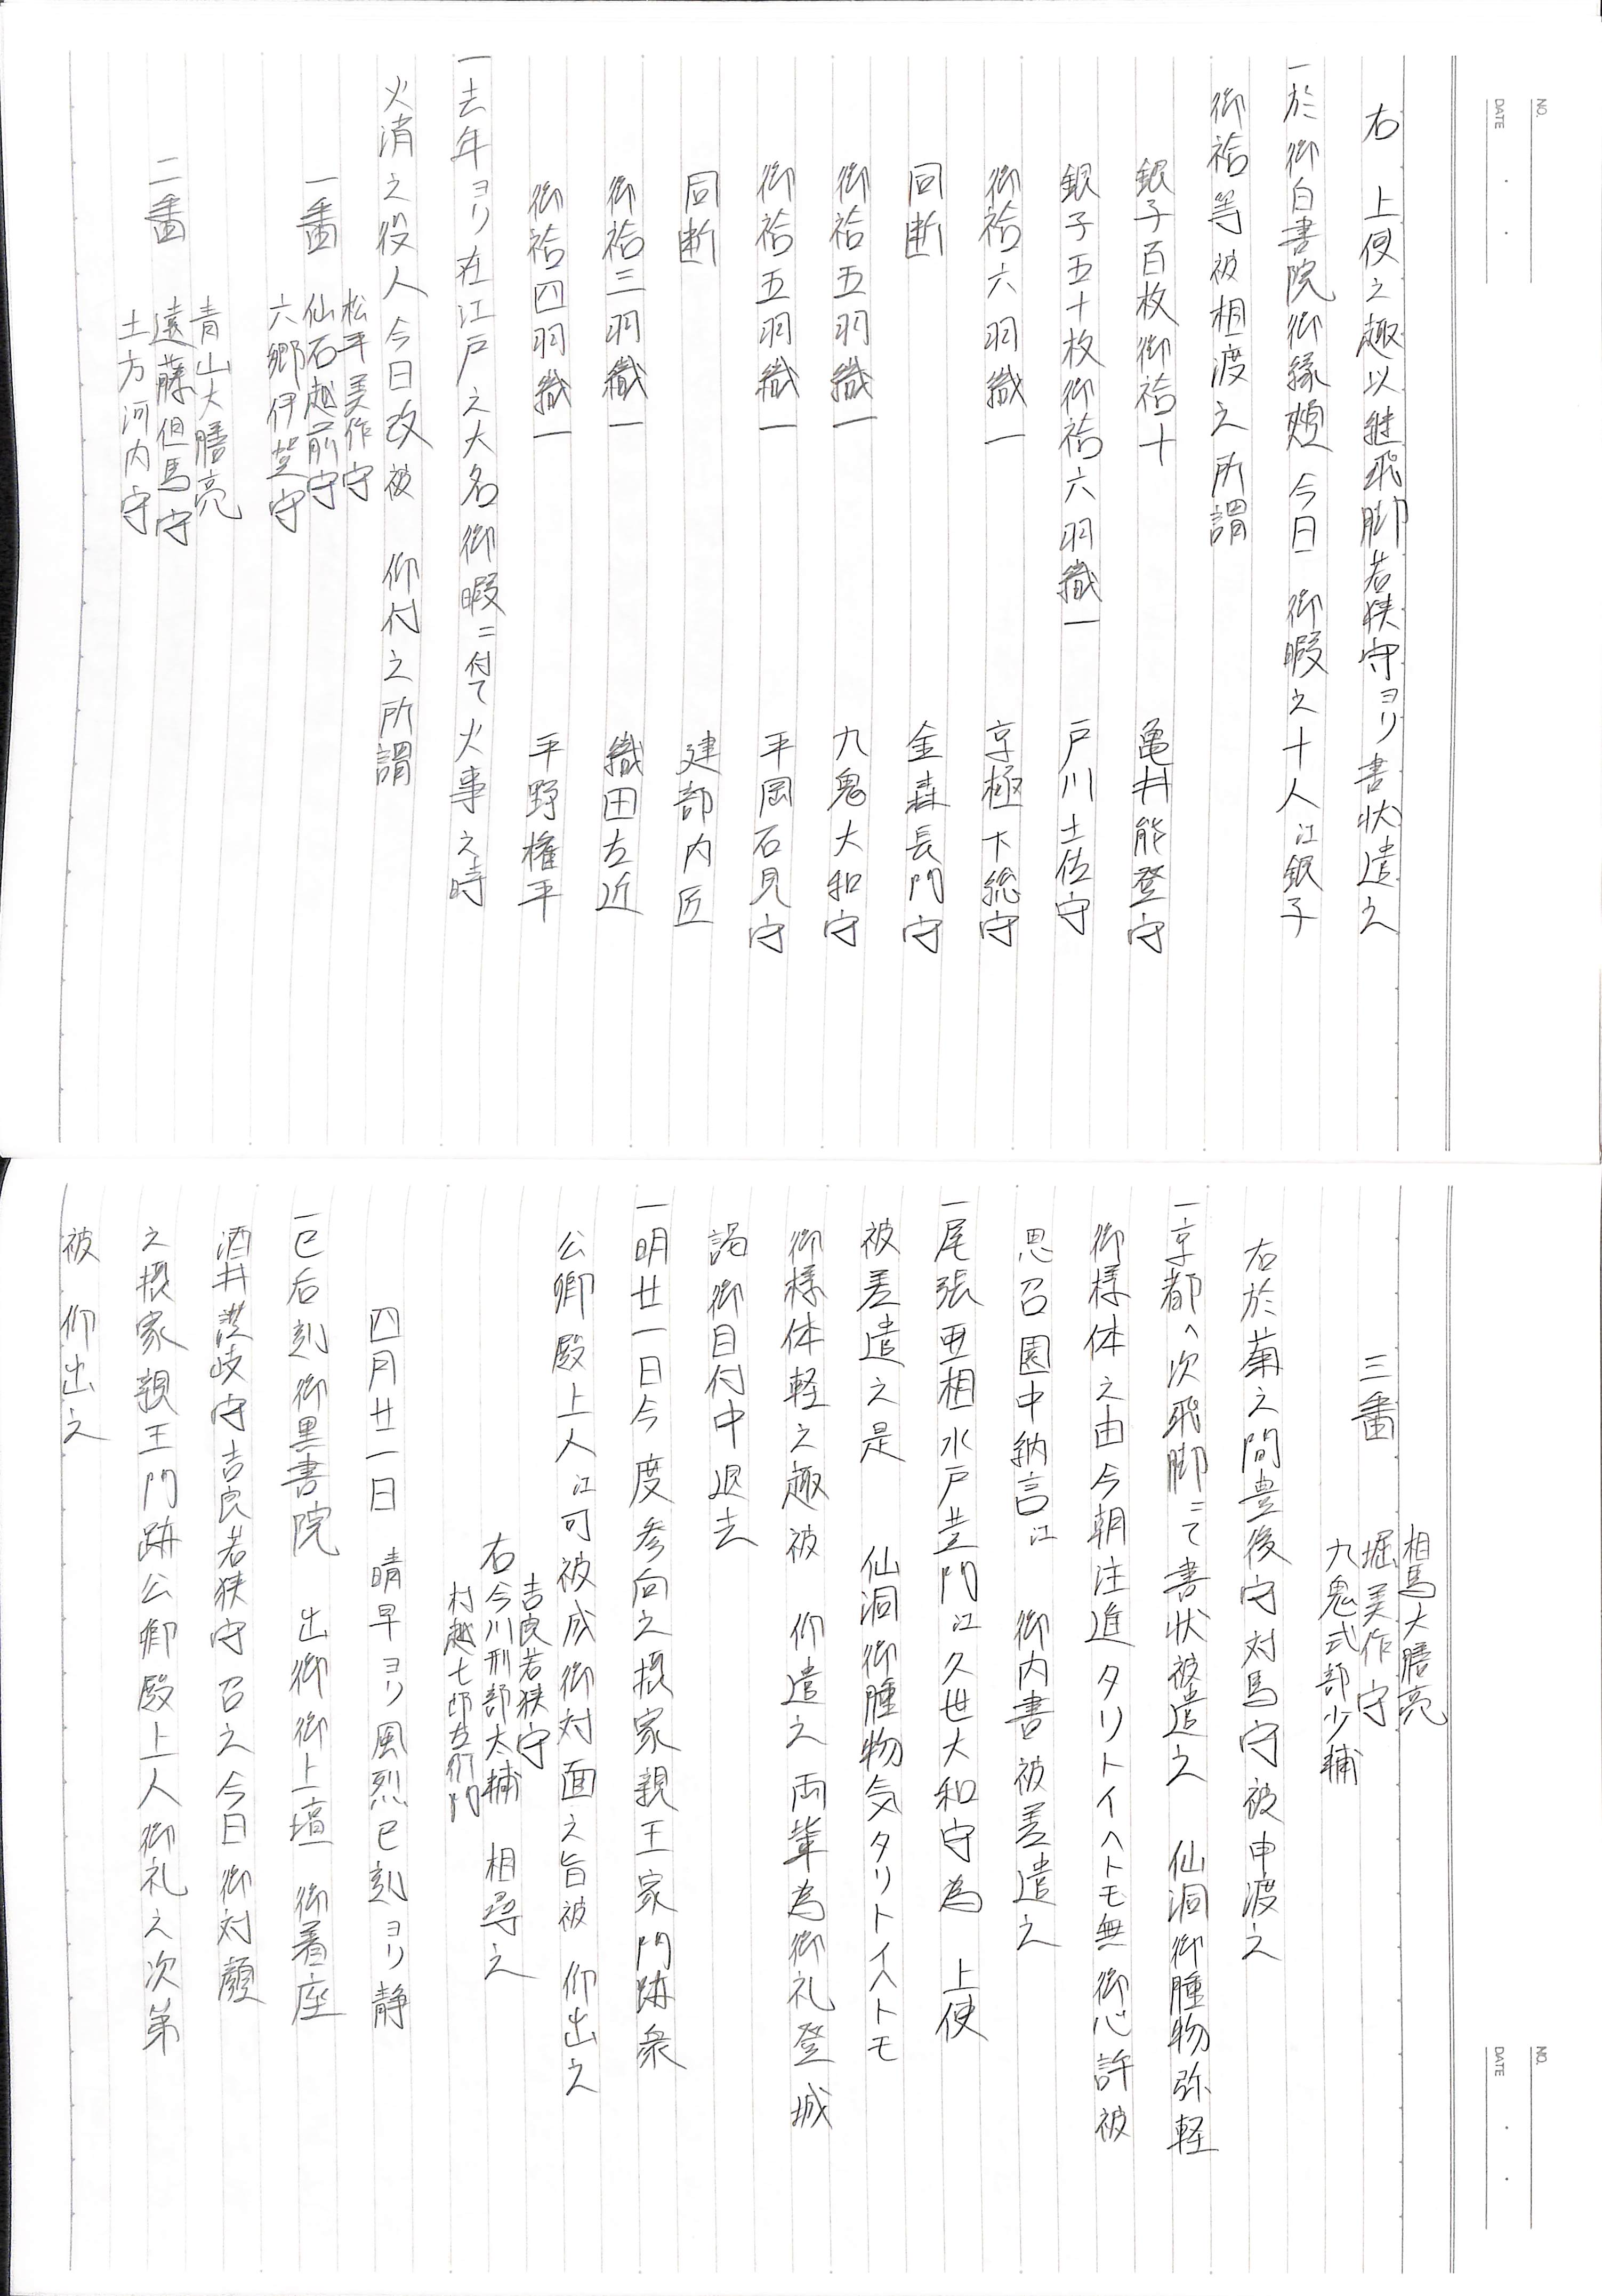 NO.
DATE
右　上使之趣以継飛脚若狭守ヨリ書状遣之
一於御白書院御縁頬今日　御暇之十人江銀子
御袷等被相渡之所謂
銀子百枚御袷十　亀井能登守
銀子五十枚御袷六羽織一　戸川土佐守
御袷六羽織一　京極下総守
同断　金森長門守
御袷五羽織一　九鬼大和守
御袷五羽織一　平岡石見守
同断　建部内匠
御袷三羽織一　織田左近
御袷四羽織一　平野権平
一去年ヨリ在江戸之大名御暇ニ付て火事之時
火消之役人今日改被　仰付之所謂
松平美作守
一番　仙石越前守
六郷伊賀守
青山大膳亮
二番　遠藤但馬守
土方河内守
NO.
DATE
相馬大膳亮
三番　堀美作守
九鬼式部少輔
右於菊之間豊後守対馬守被申渡之
一京都へ次飛脚ニて書状被遣之　仙洞御腫物弥軽
御様体之由今朝注進タリトイヘトモ無御心許被
思召園中納言江　御内書被差遣之
一尾張亜相水戸黄門江久世大和守為　上使
被差遣之是　仙洞御腫物気タリトイヘトモ
御様体軽之趣被　仰遣之両輩為御礼登城
謁御目付中退去
一明廿一日今度参向之摂家親王家門跡衆
公卿殿上人江可被成御対面之旨被　仰出之
吉良若狭守
右今川刑部太輔　相尋之
村越七郎左衛門
四月廿一日　晴早ヨリ風烈巳刻ヨリ静
一巳后刻御黒書院　出御御上壇　御着座
酒井讃岐守吉良若狭守召之今日御対顔
之摂家親王門跡公卿殿上人御礼之次第
被　仰出之